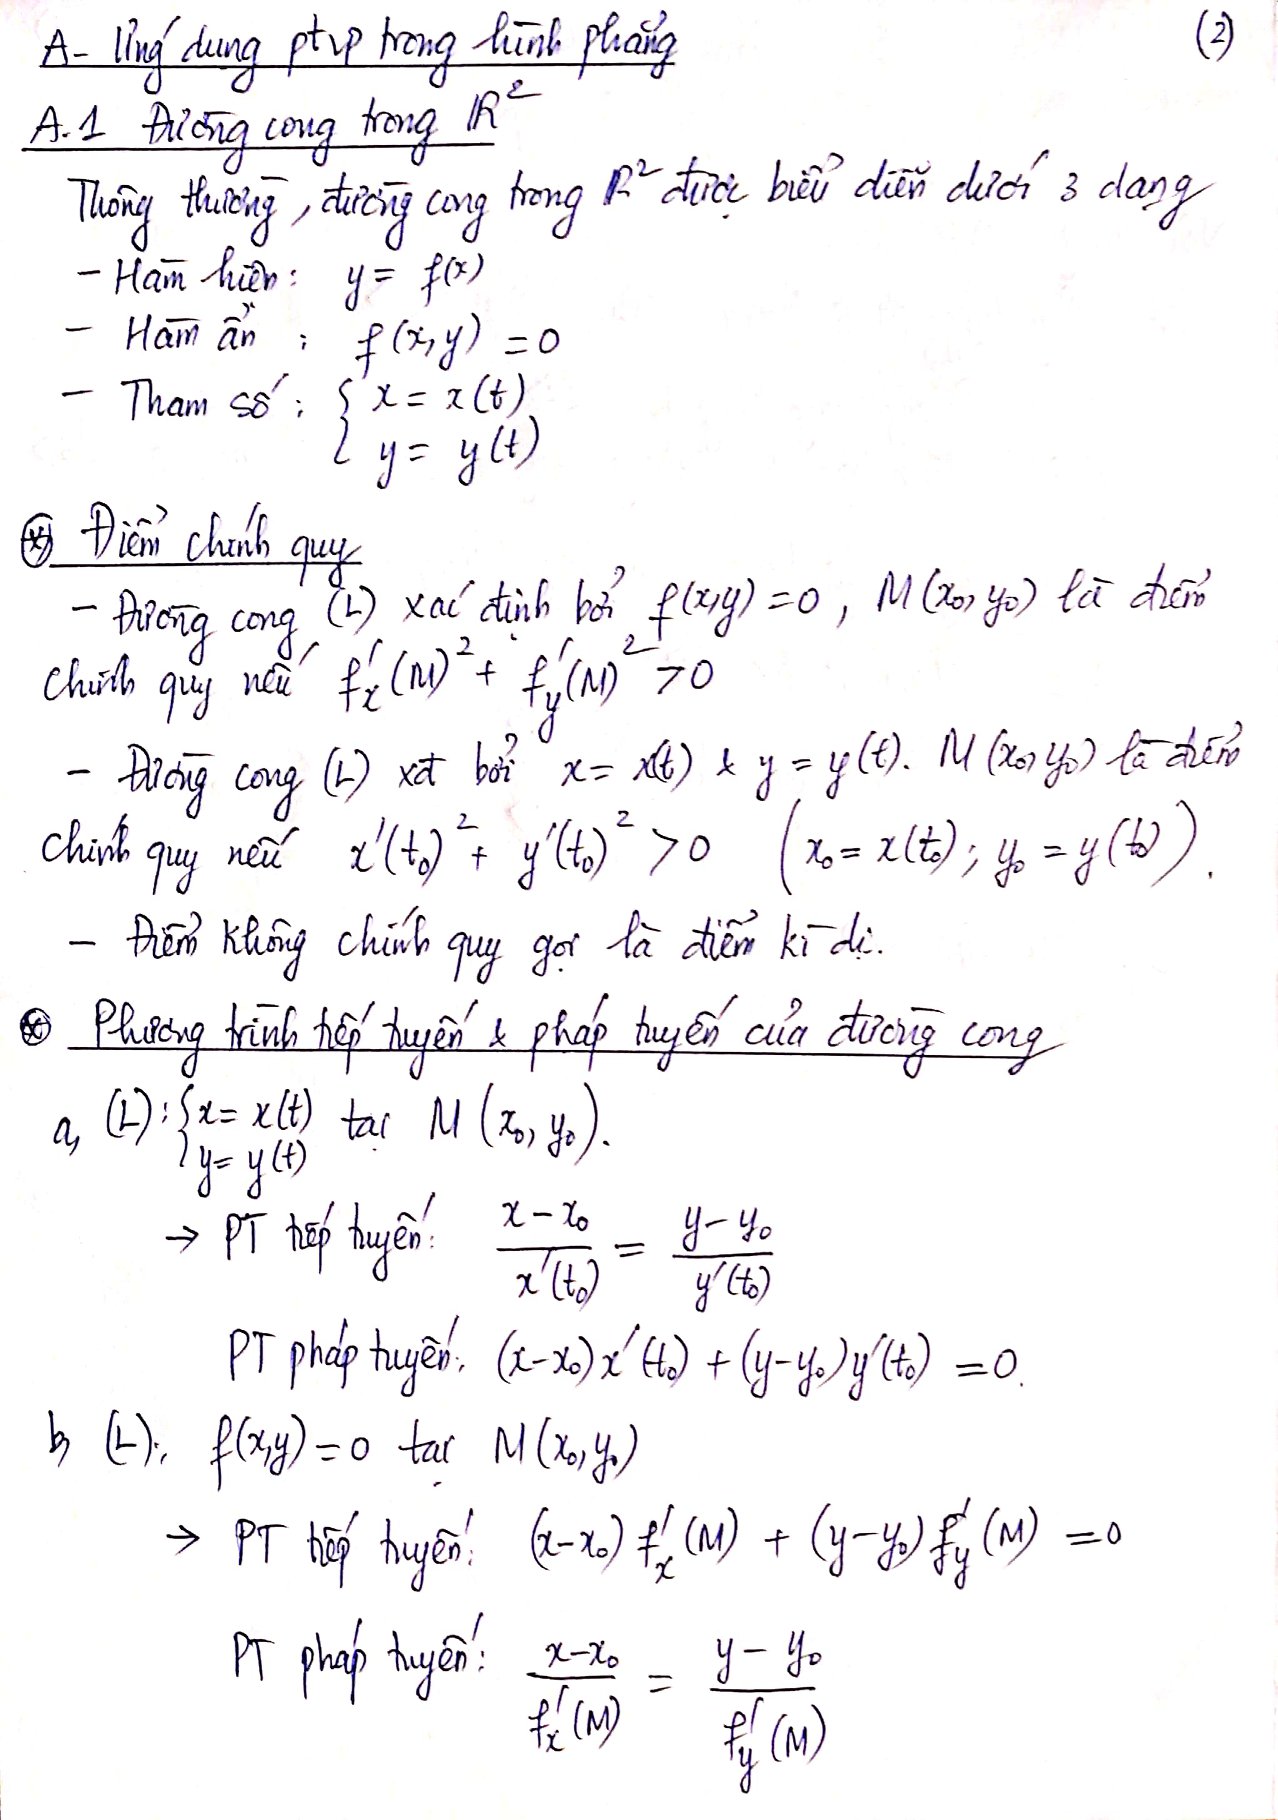 (2)
A- Ứng dụng ptvp trong hình phẳng
A.1 Đường cong trong R²
Thông thường, đường cong trong R² được biểu diễn dưới 3 dạng
- Hàm hiện: y = f(x)
- Hàm ẩn : f(x,y) = 0
- Tham số : { x = x(t)
y = y(t)
(*) Điểm chính quy
- Đường cong (L) xác định bởi f(x,y) = 0, M(x₀, y₀) là điểm
chính quy nếu f'ₓ(M)² + f'_y(M)² > 0
- Đường cong (L) xđ bởi x = x(t) & y = y(t). M(x₀, y₀) là điểm
chính quy nếu x'(t₀)² + y'(t₀)² > 0 (x₀ = x(t₀); y₀ = y(t₀)).
- Điểm không chính quy gọi là điểm kì dị.
(*) Phương trình tiếp tuyến & pháp tuyến của đường cong
a, (L): { x = x(t) tại M(x₀, y₀).
y = y(t)
→ PT tiếp tuyến: (x - x₀)/x'(t₀) = (y - y₀)/y'(t₀)
PT pháp tuyến: (x-x₀)x'(t₀) + (y-y₀)y'(t₀) = 0.
b, (L): f(x,y) = 0 tại M(x₀, y₀)
→ PT tiếp tuyến: (x-x₀) f'ₓ(M) + (y-y₀) f'_y(M) = 0
PT pháp tuyến: (x-x₀)/f'ₓ(M) = (y - y₀)/f'_y(M)